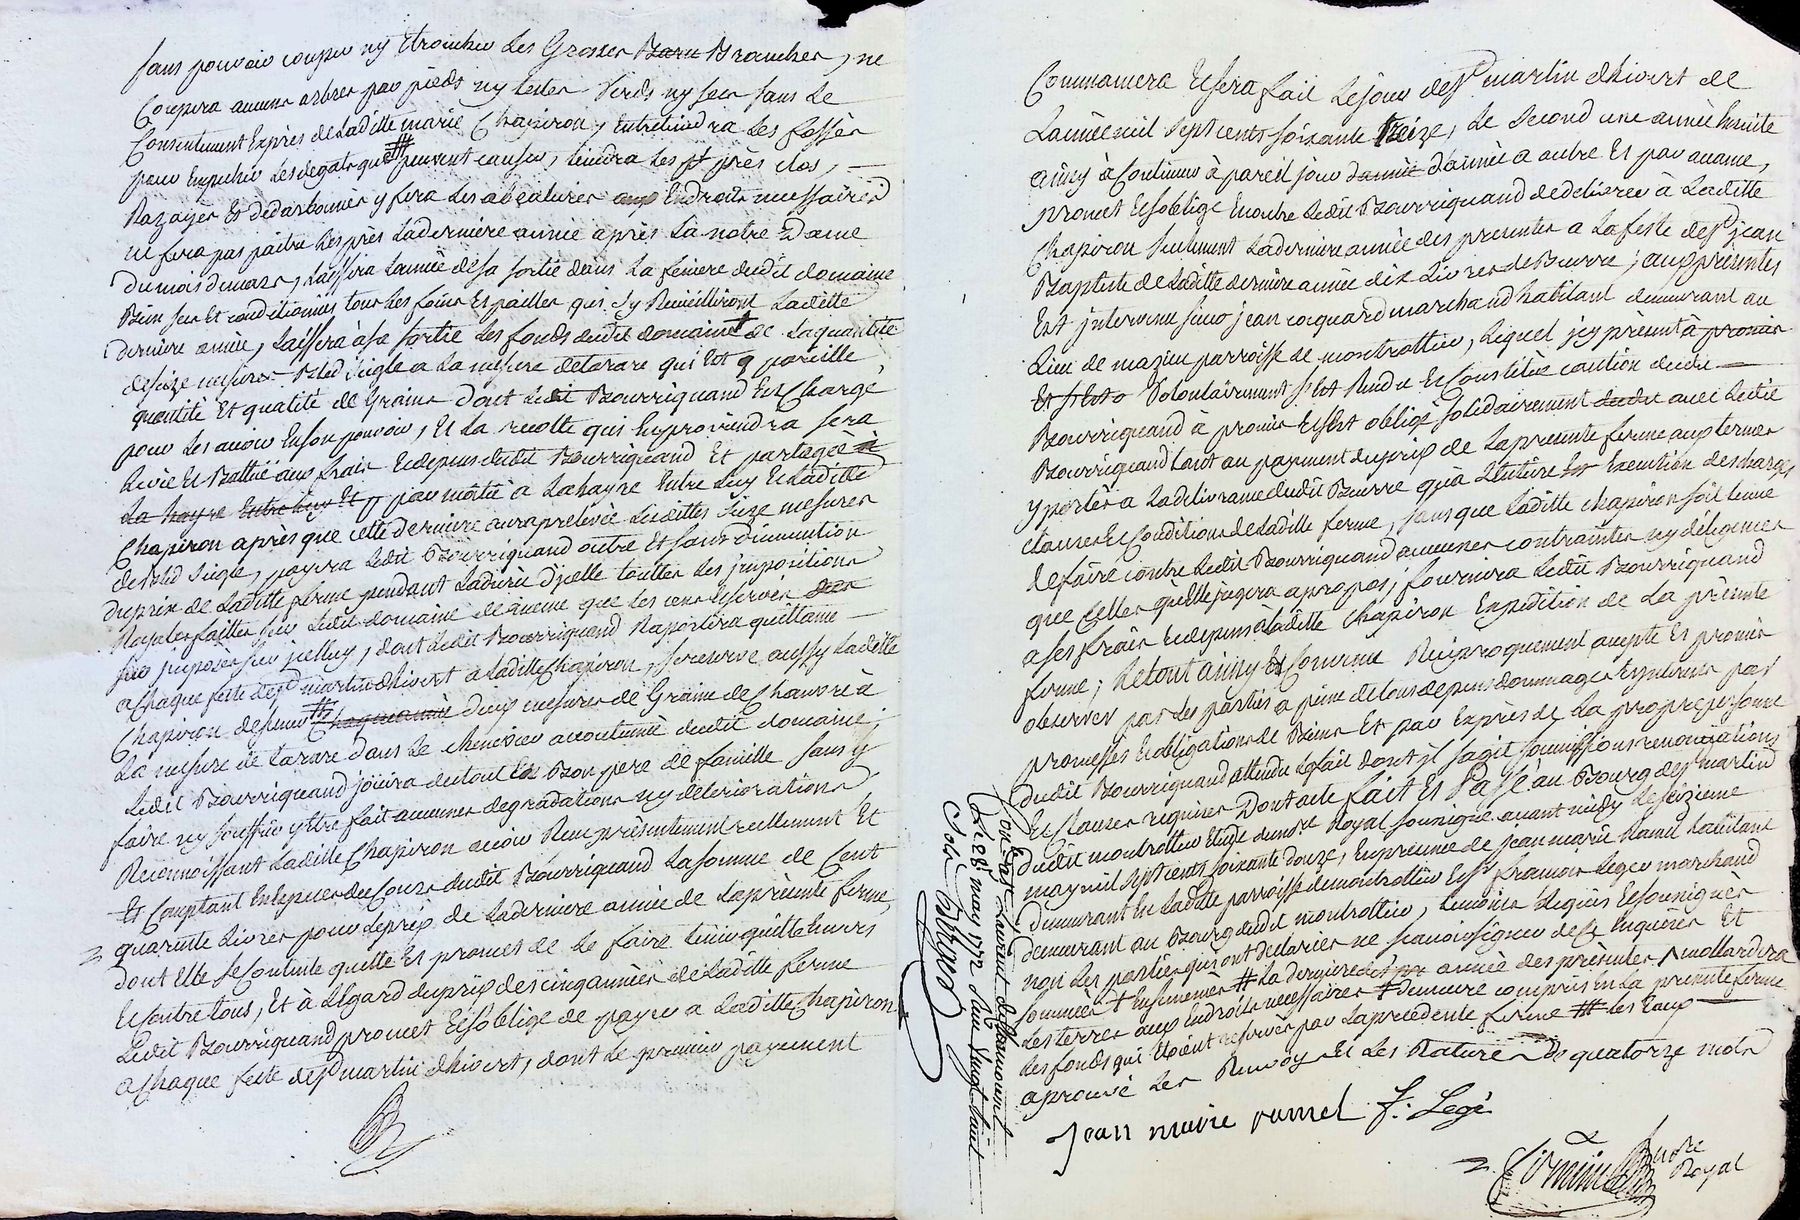 sans pouvoir couper ny Etroncher Les Grosses Barn Branches, ne
Coupera aucuns arbres par pieds ny testes Verds ny secs sans Le
Consentement Exprès de Laditte marie Chapiron, Entretiendra Les fossés
pour Empecher Les degats que # peuvent causer, tiendra Les prés clos, —
Razayer Et dedarbonner y fera Les abeatures aux Endroits necessaires
ne fera pas paitre Les prés Laderniere année après La notre Dame
du mois de mars, Laissera Lannée de sa sortie dans La feniere dudit domaine
Bien secs Et conditionnés tous Les foins Et pailles qui sy Reuëilliront Laditte
derniere année, Laissera àsa sortie Les fonds dudit domaine † de Laquantité
de seize mesures Bled seigle a La mesure detarare qui Est pareille
quantité Et qualité de Grains dont Ledit Bourriquand Est Chargé
pour Les avoir En son pouvoir, Et La recolte qui En proviendra sera
Levée Et Battüe aux frais Et depens dudit Bourriquand Et partagée à
La hayne Entre Luy Et par moitié a Lahayne Entre Luy Et Laditte
Chapiron après que cette derniere aura prelevée Lesdittes seize mesures
de Bled seigle, payera Ledit Bourriquand outre Et sans diminution
du prix de Laditte ferme pendant Ladurée d'jcelle touttes Les jmpositions
Royales faittes sur Ledit domaine de même que Les cens Et servis
jmposés sur jcelluy, dont Ledit Bourriquand Raportera quittance
a Chaque feste de St martin dhivert a Laditte Chapiron, se reserve aussy Laditte
Chapiron # Chaque année deux mesures de Graine de Chanvre à
La mesure de tarare dans Le chenevier accoutumé dudit domaine;
Ledit Bourriquand joüira du tout En Bon pere de famille sans y
faire ny souffrir y Etre fait aucunes degradations ny deteriorations
Reconnoissant Laditte Chapiron avoir Reçu présentement reellement Et
Et Comptant En Especes de Cours dudit Bourriquand La somme de Cent
quarente Livres pour Leprix de Laderniere année de Laprésente ferme,
dont Elle se Contente quitte Et promet de Le faire tenir quitte Envers
Et contre tous, Et à L'Egard du prix des cinq années de Laditte ferme
Ledit Bourriquand promet Et soblige de payer a Laditte Chapiron
a Chaque feste de St martin dhivert, dont Le premier payement
Commancera Et sera fait Le jour de St martin dhivert de
Lannée mil sept cents soixante treize, Le second une année Ensuite
ainsy à Continuer à pareil jour dannée d'année a autre Et par avance,
promet Et soblige En outre Ledit Bourriquand de delivrer à Laditte
Chapiron seulement Laderniere année des presentes a La feste de St jean
Baptiste de Laditte derniere année dix Livres de Beurre; aux présentes
Est jntervenu sieur jean coquard marchand habitant demeurant au
Lieu de mazieu parroisse de montrottier, Lequel jcy présent à promis
Et s'Est Volontairement s'Est Rendu Et Constitüé caution dudit —
Bourriquand à promis Et s'Est obligé solidairement dudit avec Ledit
Bourriquand tant au payement du prix de Lapresente ferme aux termes
y portés a Ladelivrance dudit Beurre qu'à L'Entiere Execution des charges
clauses Et Conditions de Laditte ferme, sans que Laditte Chapiron soit tenue
de faire contre Ledit Bourriquand aucunes contraintes ny diligences
que Celles qu'Elle jugera apropos; fournira Ledit Bourriquand
a ses frais Et depens à Laditte Chapiron Expedition de La présente
ferme; Le tout ainsy Et Convenu Reciproquement accepté Et promis
observer par Les parties a peine de tous depens dommages Et jnterets par
promesses Et obligations de Biens Et par Exprès de La propre personne
dudit Bourriquand attendu Lefait dont jl sagit soumissions renonciations
Et Clauses requises Dont acte fait Et Passé au Bourg de St martin
dudit montrottier Etude du nore Royal soussigné avant midy Le seizieme
may mil sept cents soixante douze, En presence de jean marie Ramel habitant
demeurant En Laditte parroisse de montrottier Et sr francois Legee marchand
demeurant au Bourg dudit montrottier, temoins Requis Et soussignés
non Les parties qui ont declarées ne scavoir signer de ce Enquises Et
sommées † Ensemencés # La derniere année des présentes
Les terres aux Endroits necessaires # demeure compris En La presente ferme
Les fonds qui Etoient reservés par Laprécedente ferme # Les Eaux —
aprouvé Les Renvoy Et Les Rature De quatorze mots
jean marie ramel f: Legé
nore
Royal
Controllé a St Laurent de Chamousset
Le 28 may 1772